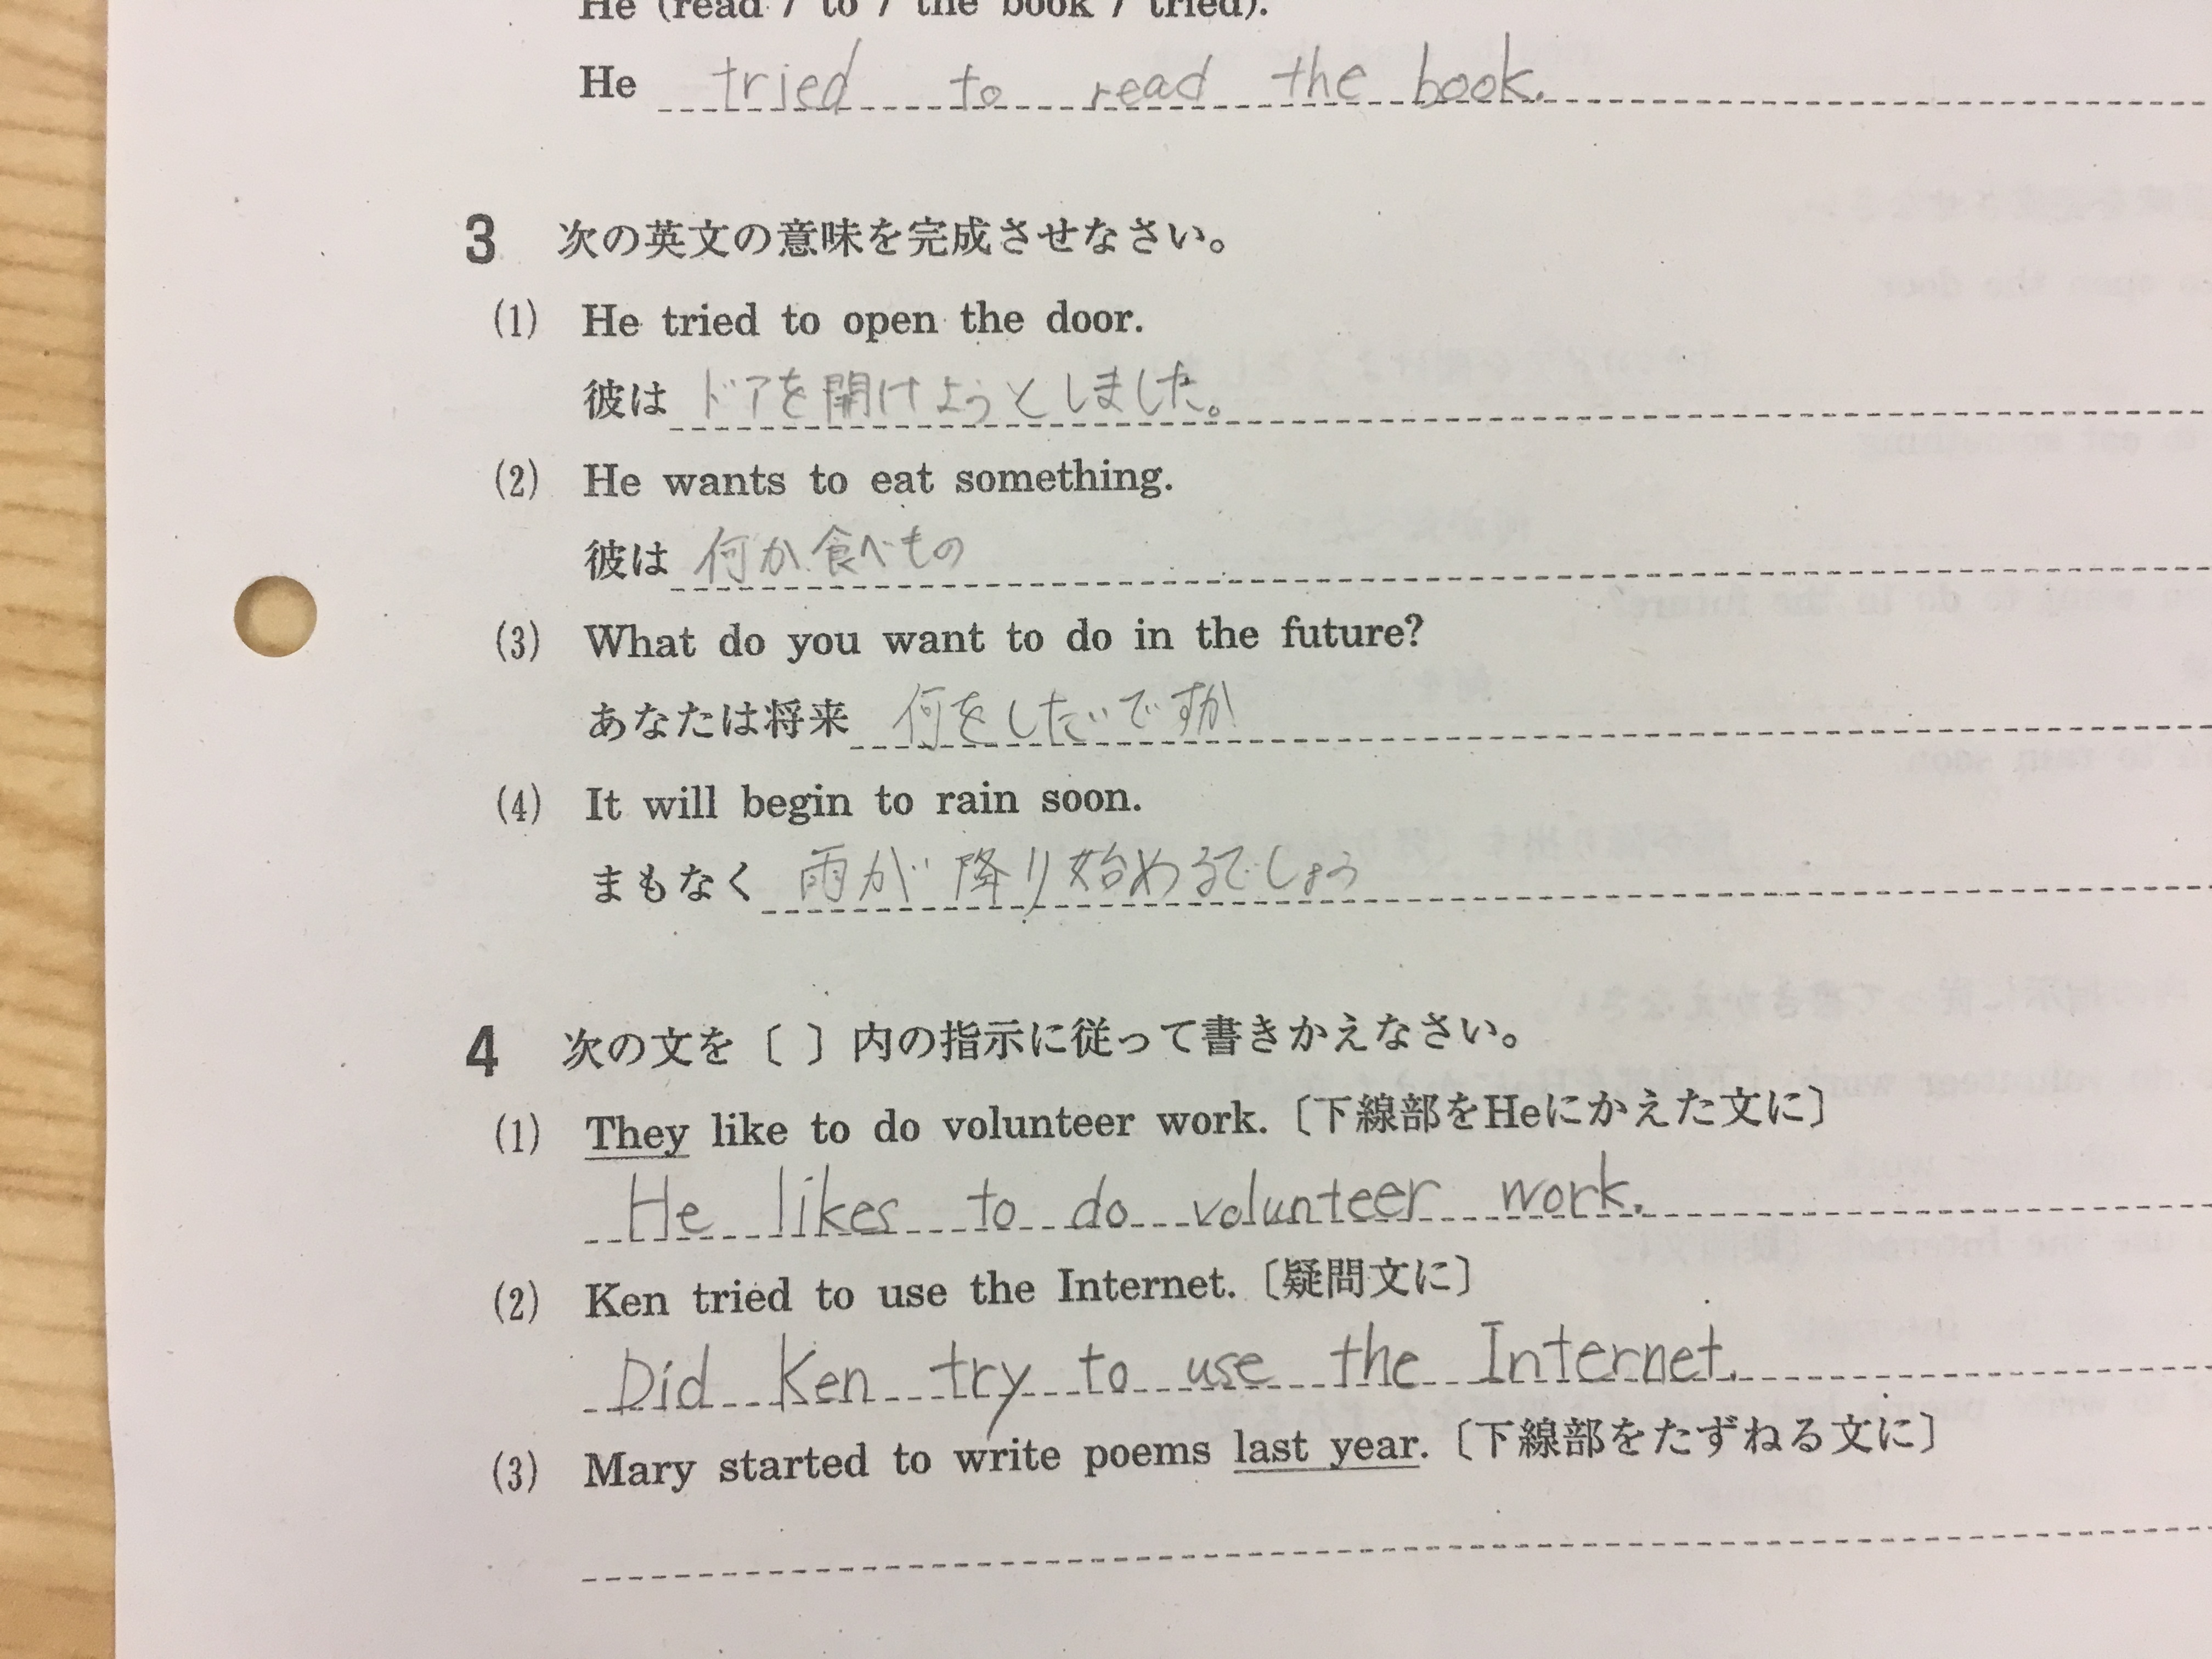 He (read / to / the book / tried).
He tried to read the book.
3 次の英文の意味を完成させなさい。
(1) He tried to open the door.
彼は ドアを開けようとしました。
(2) He wants to eat something.
彼は 何か食べもの
(3) What do you want to do in the future?
あなたは将来 何をしたいですか
(4) It will begin to rain soon.
まもなく 雨が降り始めるでしょう
4 次の文を〔 〕内の指示に従って書きかえなさい。
(1) They like to do volunteer work.〔下線部をHeにかえた文に〕
He likes to do volunteer work.
(2) Ken tried to use the Internet.〔疑問文に〕
Did Ken try to use the Internet.
(3) Mary started to write poems last year.〔下線部をたずねる文に〕